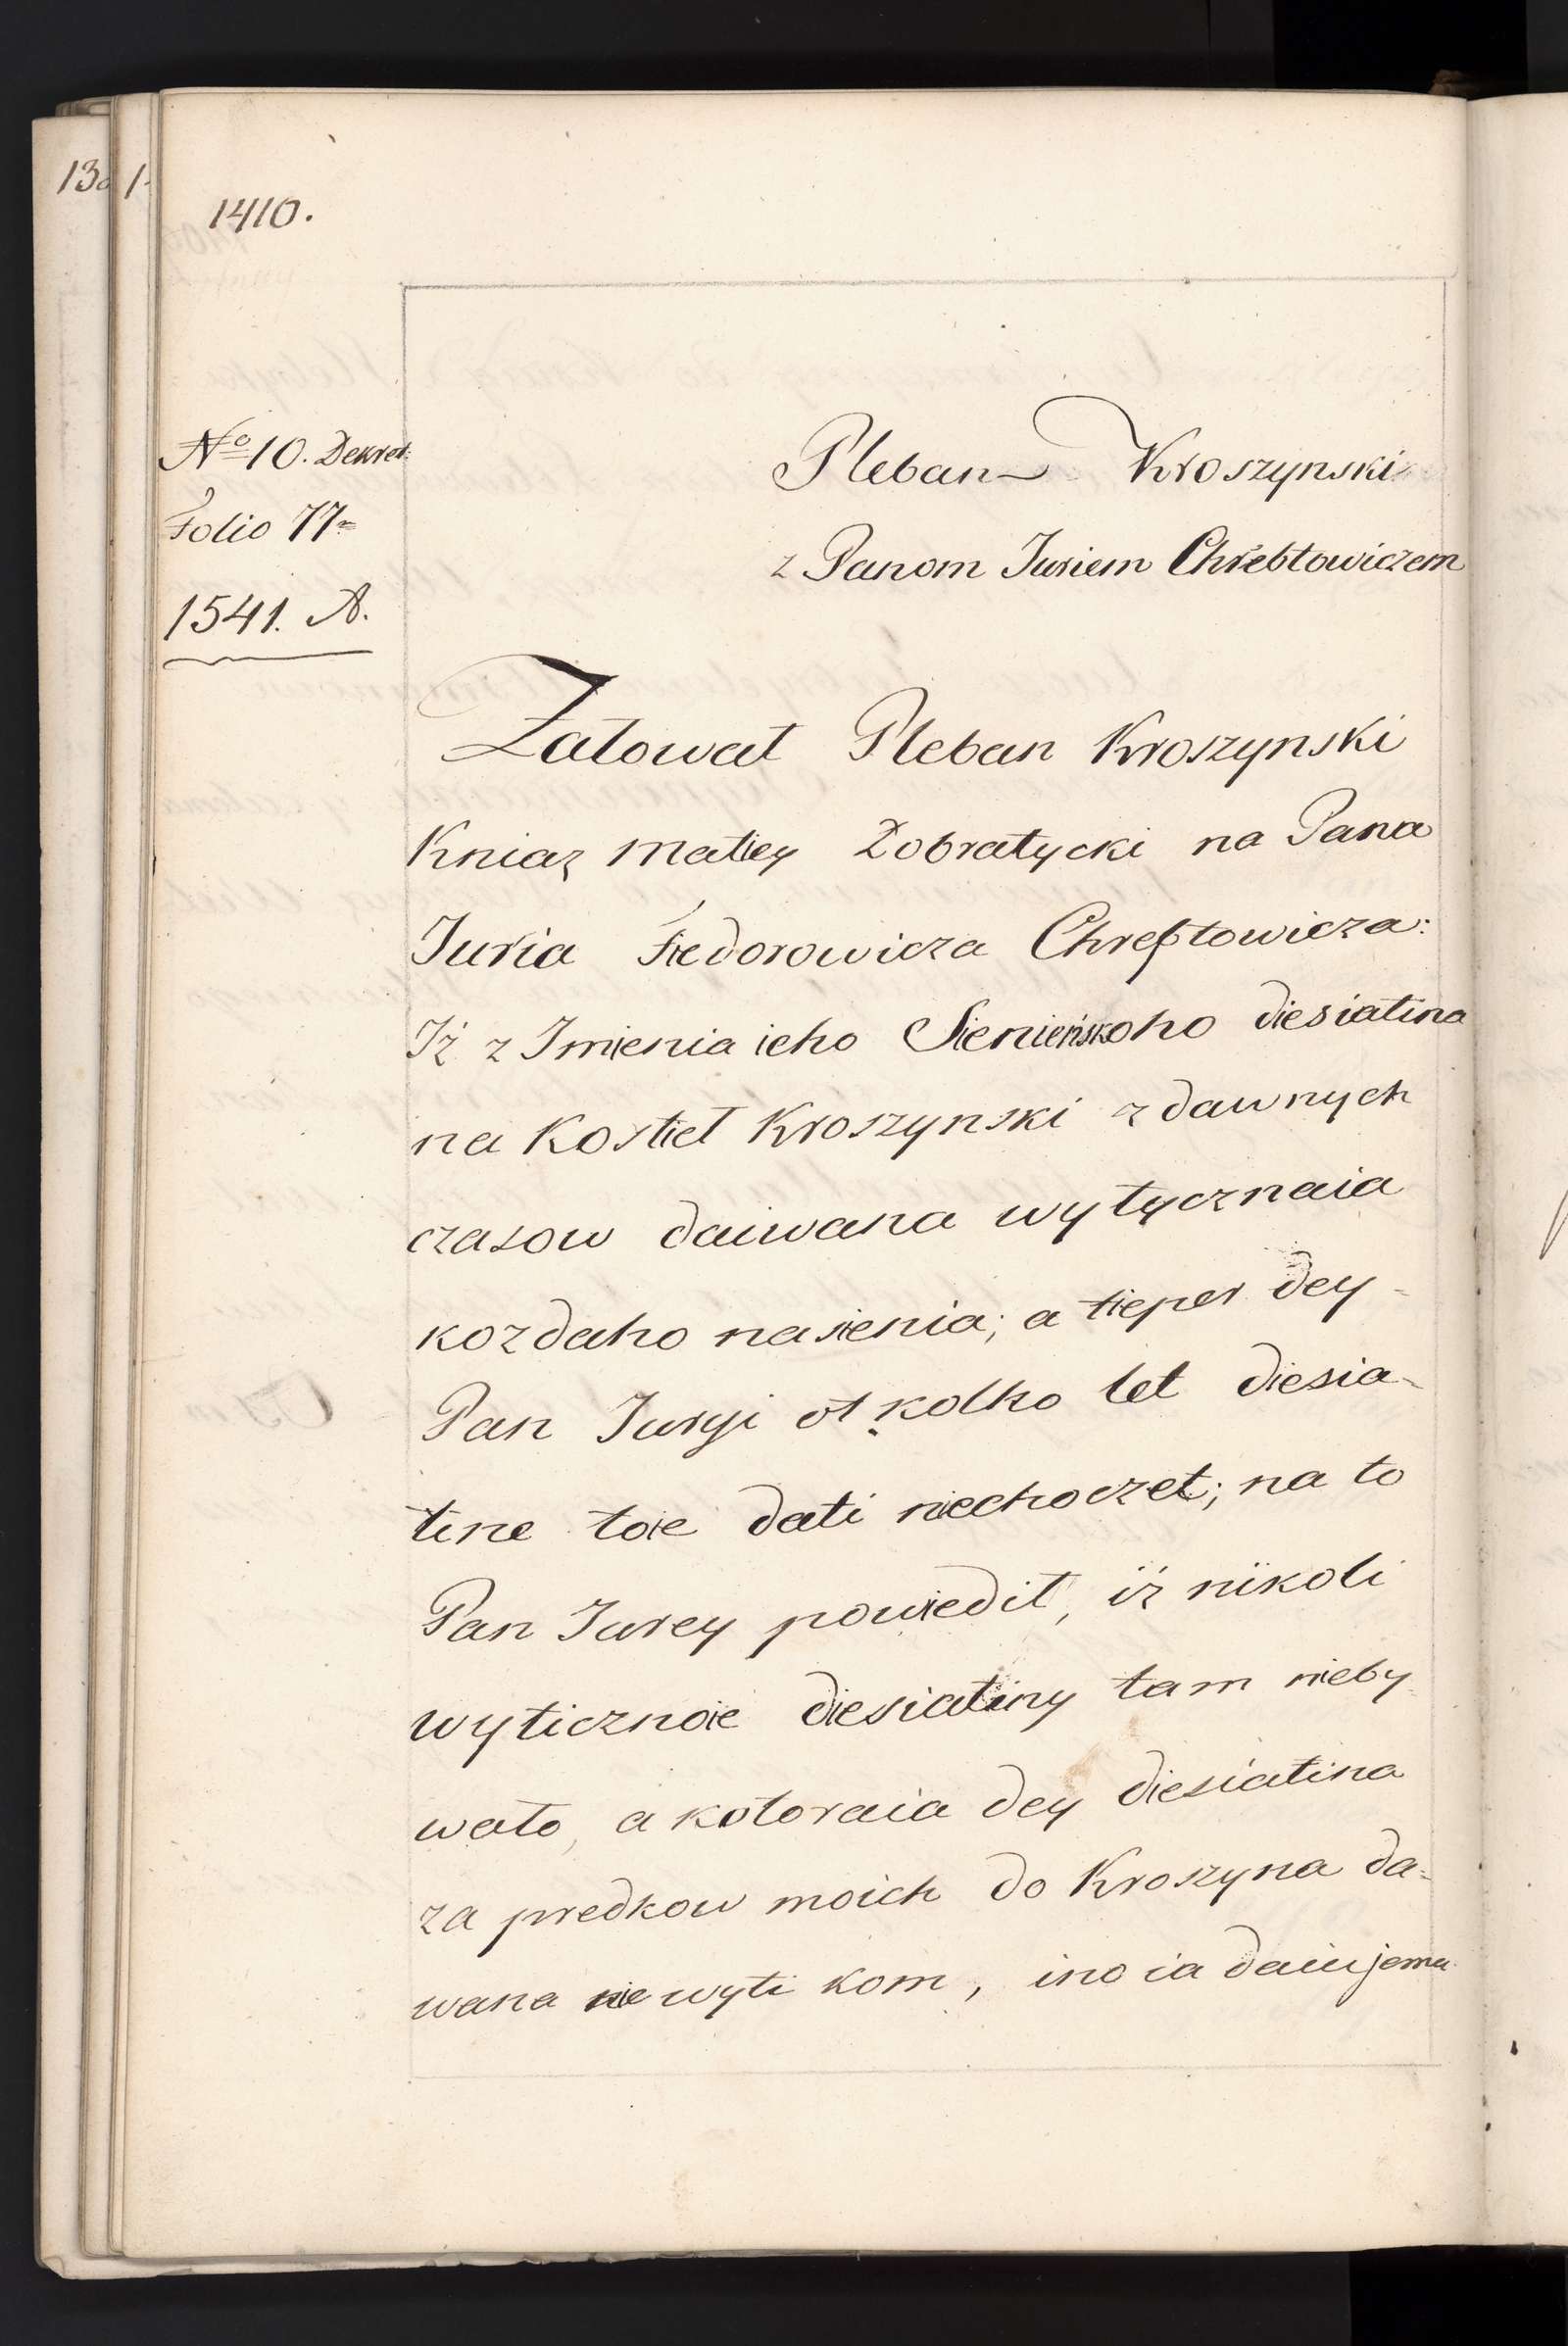 13
1
1410.
No 10. Dekret:
Folio 77
1541. A.
Pleban Kroszynski
z Panom Juriem Chrebtowiczem
Żałował Pleban Kroszynski
Kniaz Matiey Żobratycki na Pana
Juria Fiedorowicza Chreptowicza:
Iż z Imienia ieho Sienieńskoho diesiatina
na Kostieł Kroszynski zdawnych
czasow daiwana wytycznaia
kozdaho nasienia; a tieper dey
Pan Juryi ot kolko let diesia-
tine toie dati niechoczet; na to
Pan Jurey powiedił, iż nikoli
wyticznoie diesiatiny tam nieby-
wało, a kotoraia dey diesiatina
za predkow moich do Kroszyna da-
wana nie wyti kom, ino ia daiu jemu